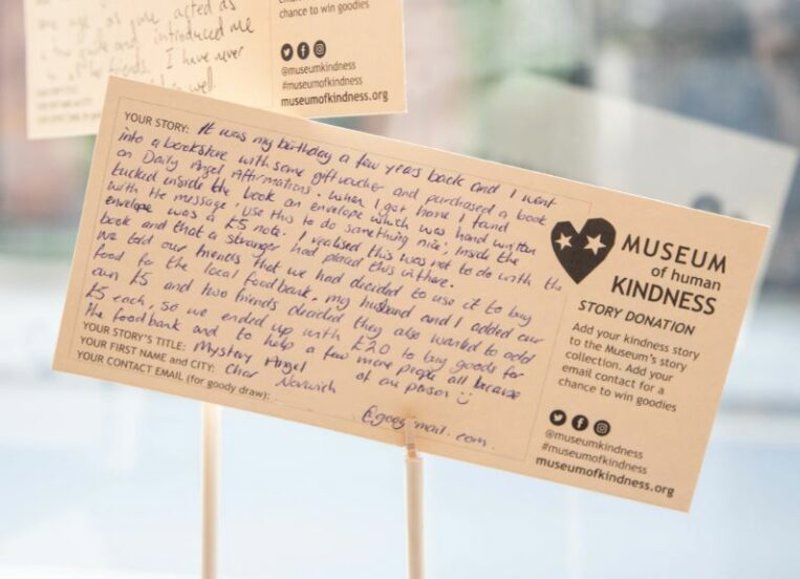 age of one acted as
guide and introduced me
friends. I have never
well.
chance to win goodies
@museumkindness
#museumofkindness
museumofkindness.org
YOUR STORY: It was my birthday a few years back and I went
into a bookstore with some gift voucher and purchased a book
on Daily Angel Affirmations. When I got home I found
tucked inside the book an envelope which was hand written
with the message, 'Use this to do something nice', Inside the
envelope was a £5 note. I realised this was not to do with the
book and that a stranger had placed this in there.
We told our friends that we had decided to use it to buy
food for the local foodbank, my husband and I added our
own £5 and two friends decided they also wanted to add
£5 each, so we ended up with £20 to buy goods for
the foodbank and to help a few more people all because
of one person
YOUR STORY'S TITLE: Mystery Angel
YOUR FIRST NAME and CITY: Char Norwich
YOUR CONTACT EMAIL (for goody draw):
mail.com.
MUSEUM
of human
KINDNESS
STORY DONATION
Add your kindness story
to the Museum's story
collection. Add your
email contact for a
chance to win goodies
@museumkindness
#museumofkindness
museumofkindness.org